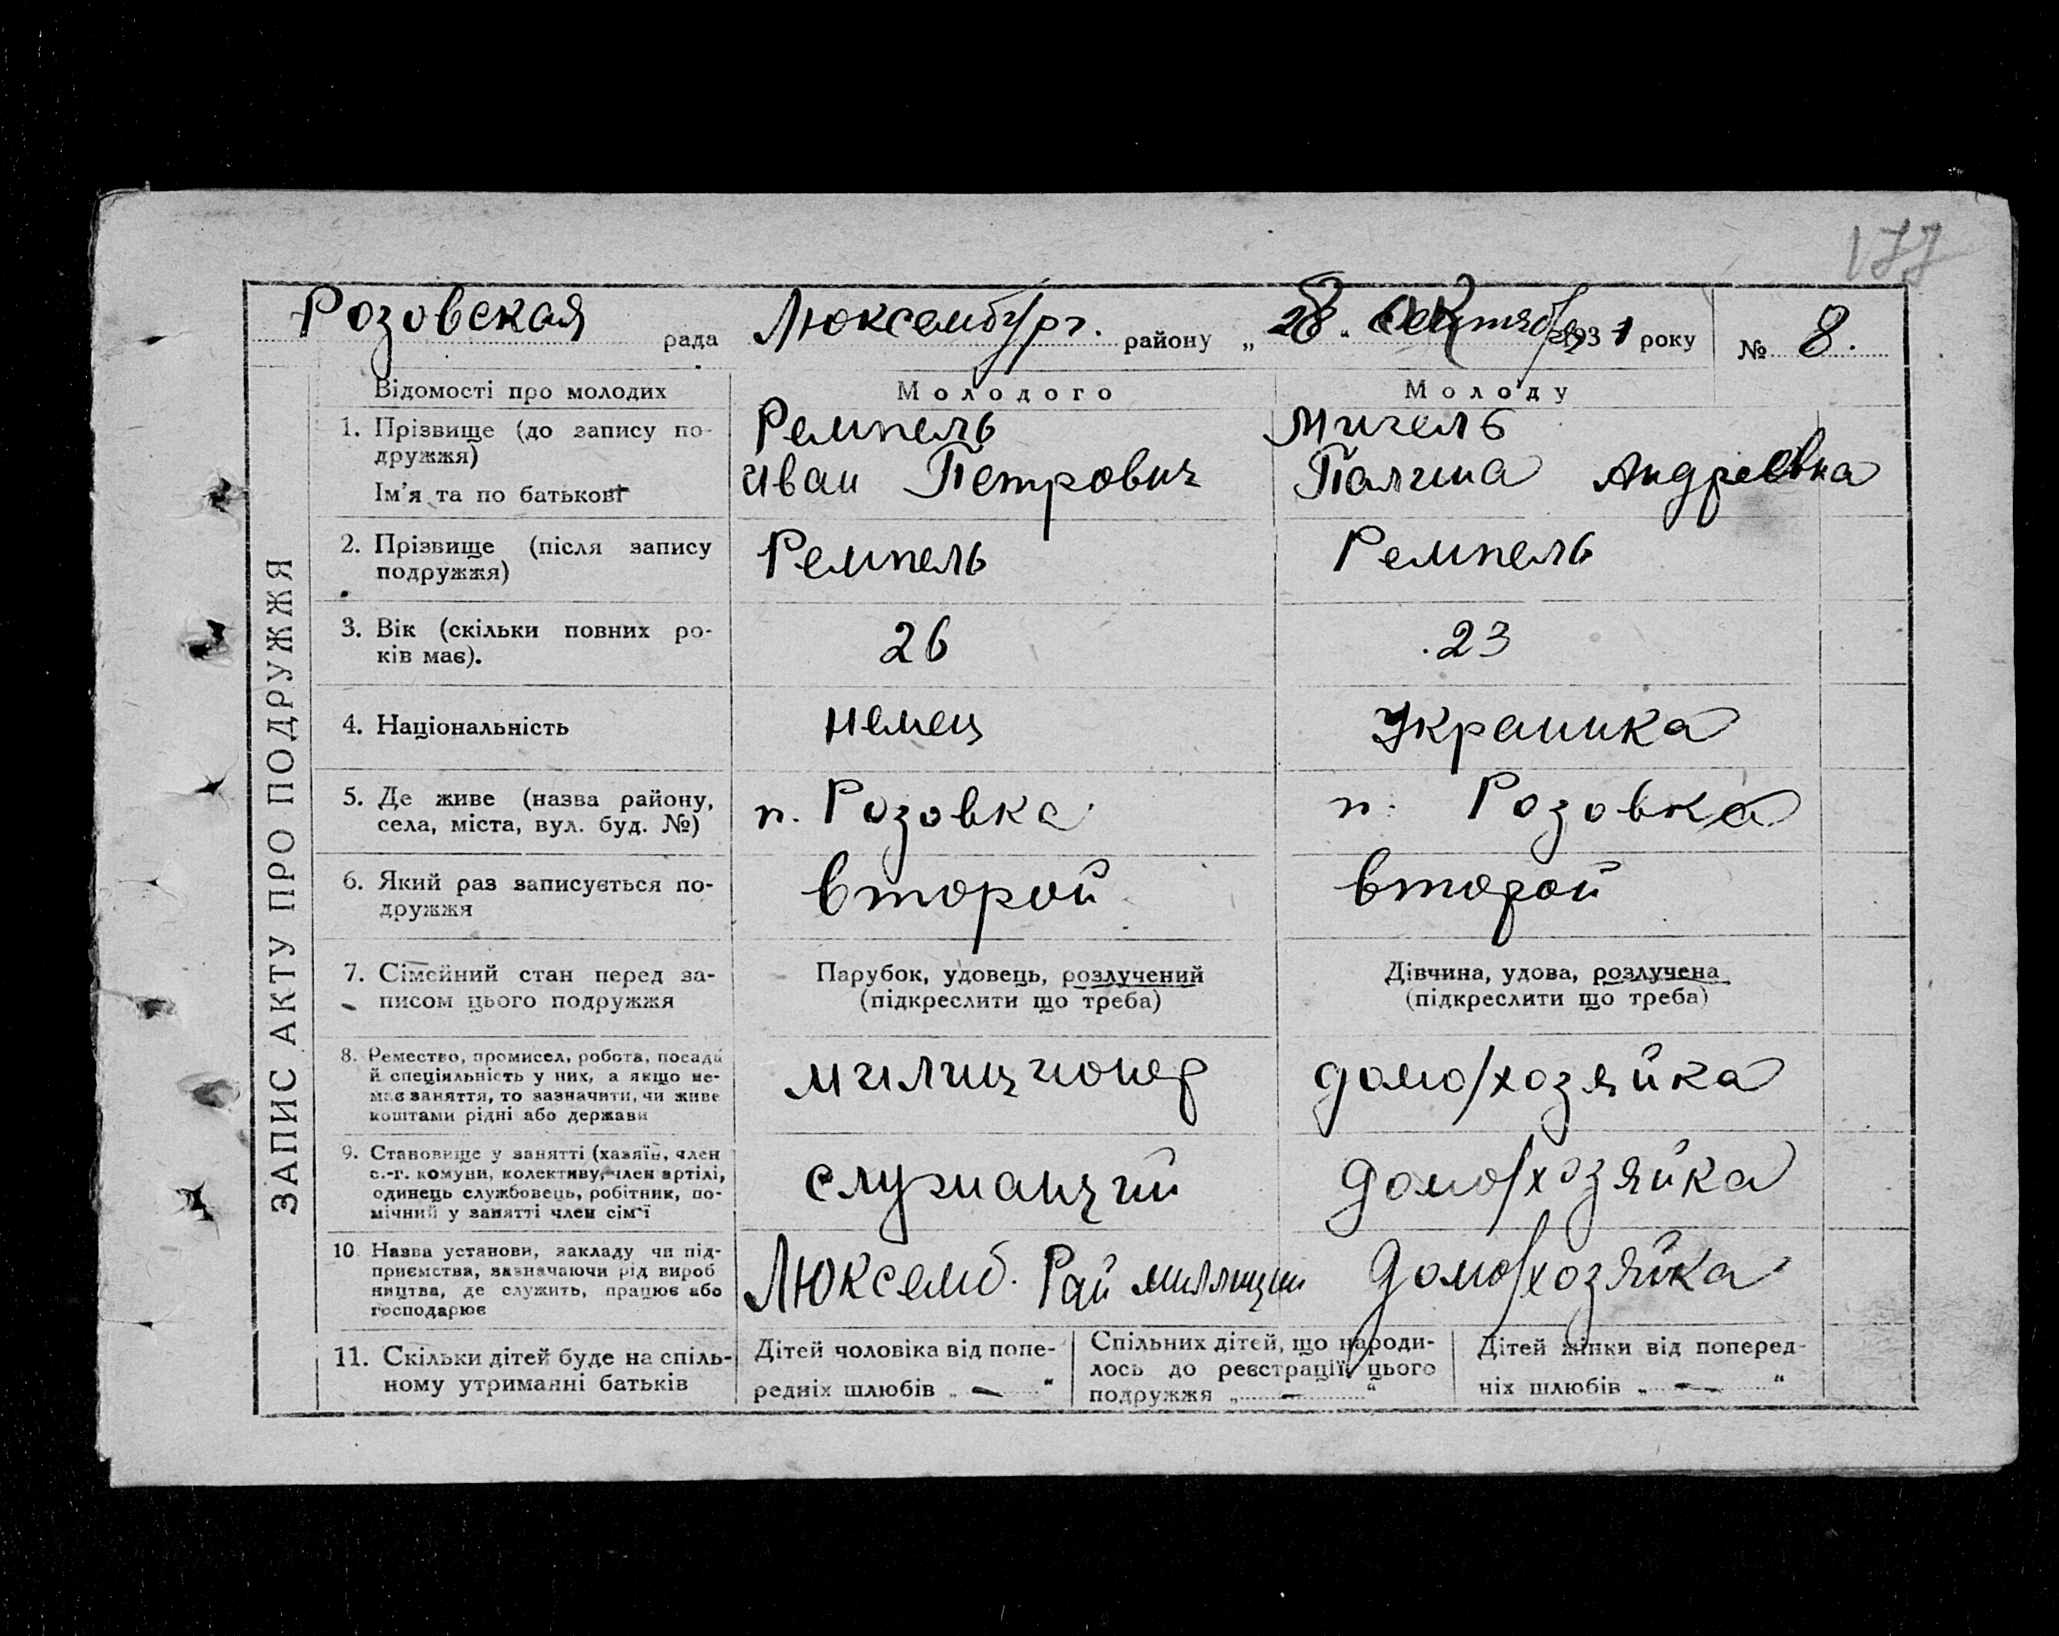 177
Розовская рада Люксембург. району „28“ Октября 1931 року № 8.
ЗАПИС АКТУ ПРО ПОДРУЖЖЯ
Відомості про молодих Молодого Молоду
1. Прізвище (до запису по- Ремпель Мигель
дружжя)
Ім'я та по батькові Иван Петрович Полина Андреевна
2. Прізвище (після запису Ремпель Ремпель
подружжя)
3. Вік (скільки повних ро- 26 23
ків має).
4. Національність немец Украинка
5. Де живе (назва району, п. Розовка п. Розовка
села, міста, вул. буд. №)
6. Який раз записується по- второй второй
дружжя
7. Сімейний стан перед за- Парубок, удовець, розлучений Дівчина, удова, розлучена
писом цього подружжя (підкреслити що треба) (підкреслити що треба)
8. Ремество, промисел, робота, посада
й спеціяльність у них, а якщо не- милиционер домо/хозяйка
має заняття, то зазначити, чи живе
коштами рідні або держави
9. Становище у занятті (хазяїн, член
с.-г. комуни, колективу, член артілі, служащий домо/хозяйка
одинець службовець, робітник, по-
мічний у занятті член сім'ї
10. Назва установи, закладу чи під-
приємства, зазначаючи рід вироб Люксемб. Рай милиции домо/хозяйка
ництва, де служить, працює або
господарює
11. Скільки дітей буде на спіль- Дітей чоловіка від попе- Спільних дітей, що народи- Дітей жінки від поперед-
ному утриманні батьків редніх шлюбів „—“ лось до реєстрації цього ніх шлюбів „—“
подружжя „—“